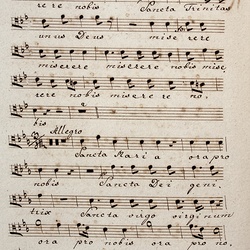 rere nobis Sancta Trinitas
unus Deus mise rere
miserere miserere nobis mise
rere nobis miserere no.
bis
Allegro
Sancta Mari a ora pro
nobis Sancta Dei geni.
trix Sancta virgo virginum
ora pro nobis ora pro no.